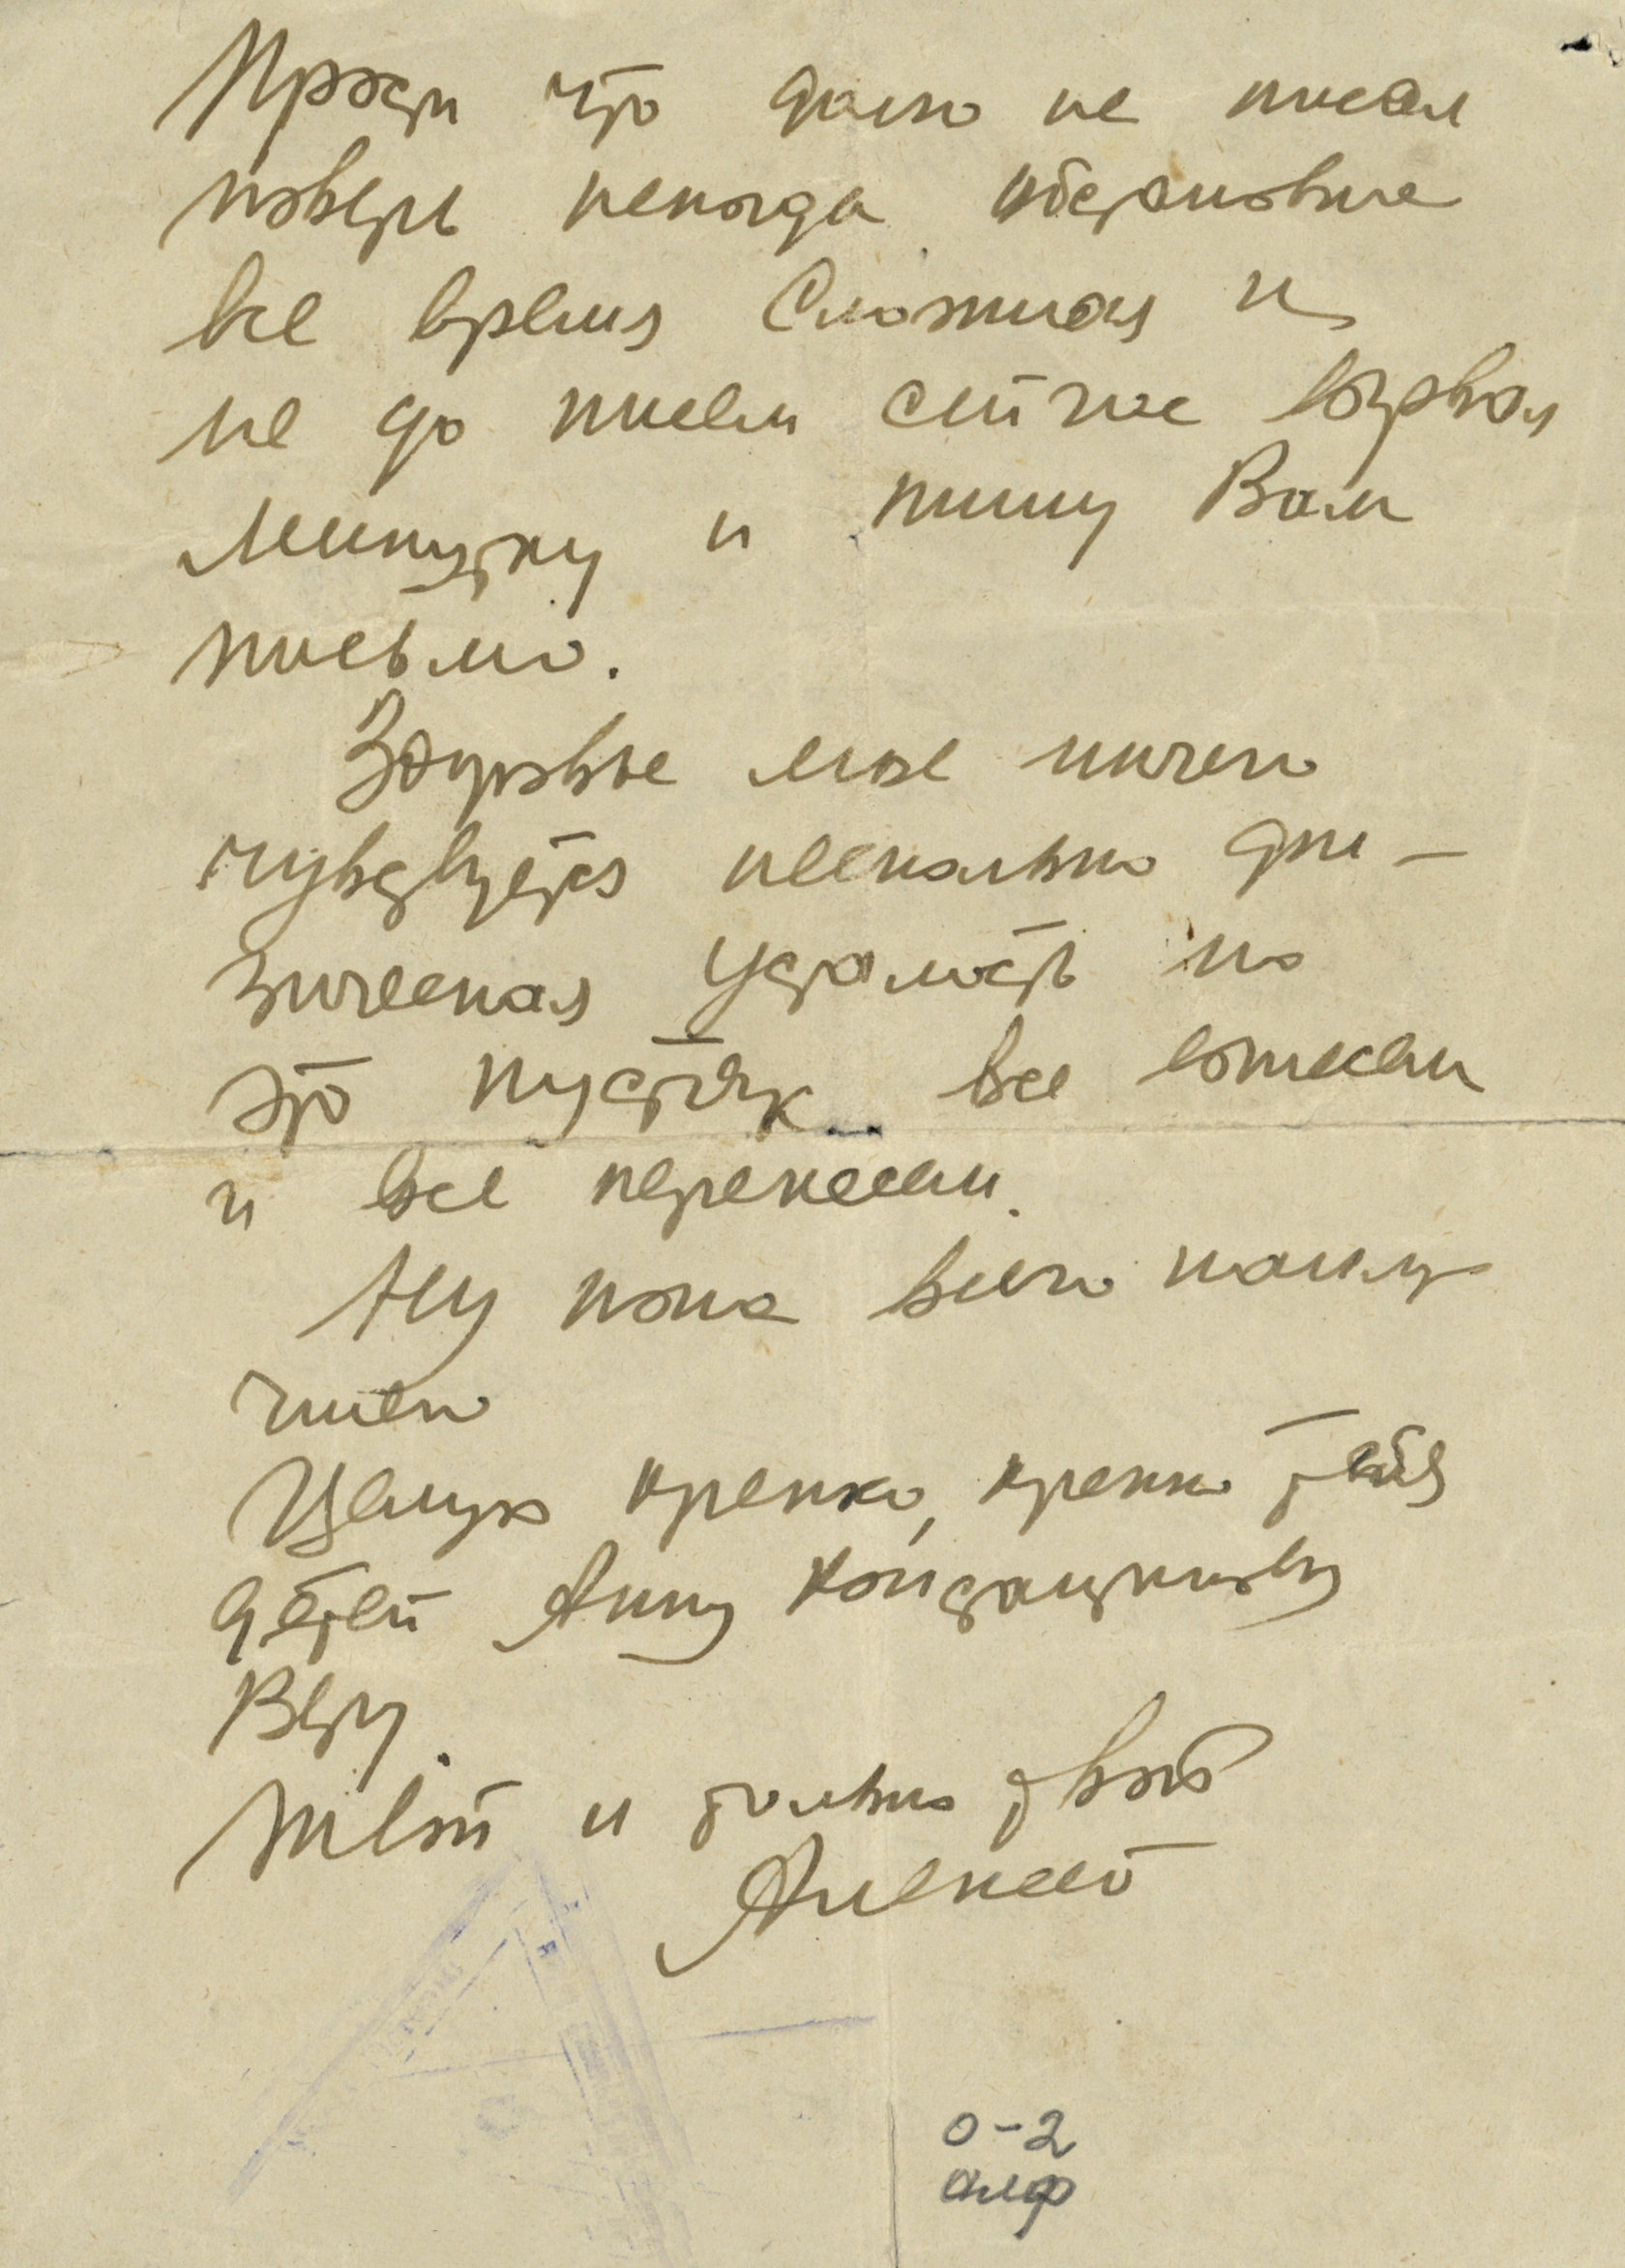 Прости что долго не писал
поверь некогда обстановка
все время сложная и
не до писем сейчас вырвал
минутку и пишу Вам
письмо.
Здоровье мое ничего
чувствуется несколько фи-
зическая усталость но
это пустяк все вынесем
и все перенесем.
Ну пока всего наилу
чшего
Целую крепко, крепко тебя
детей Анну Кондратьевну
Веру.
Твой и только твой
Алексей
0-2
алф